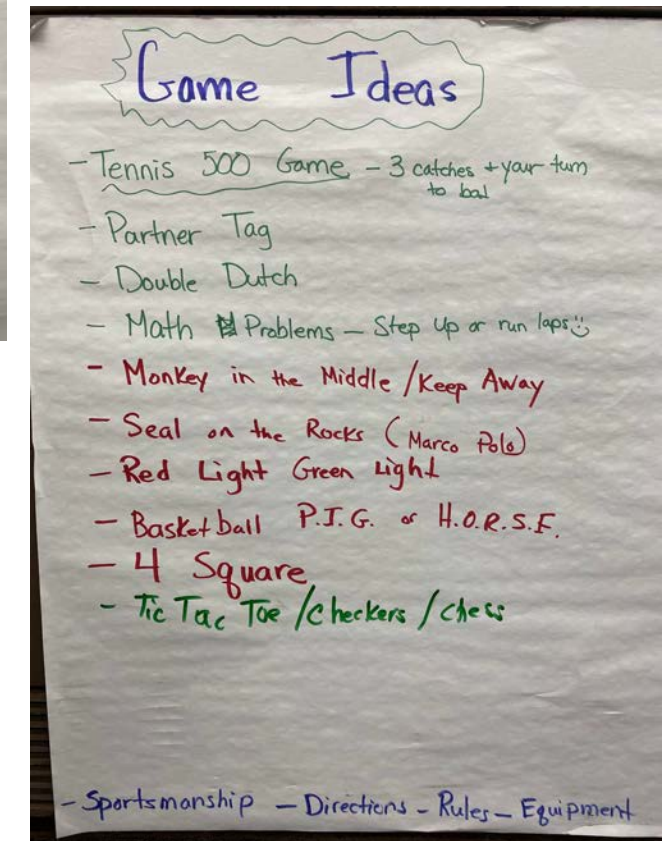 Game Ideas
- Tennis 500 Game - 3 catches + your turn
to bal
- Partner Tag
- Double Dutch
- Math Problems - Step Up or run laps
- Monkey in the Middle / Keep Away
- Seal on the Rocks (Marco Polo)
- Red Light Green Light
- Basketball P.I.G. or H.O.R.S.E.
- 4 Square
- Tic Tac Toe / checkers / chess
- Sportsmanship - Directions - Rules - Equipment